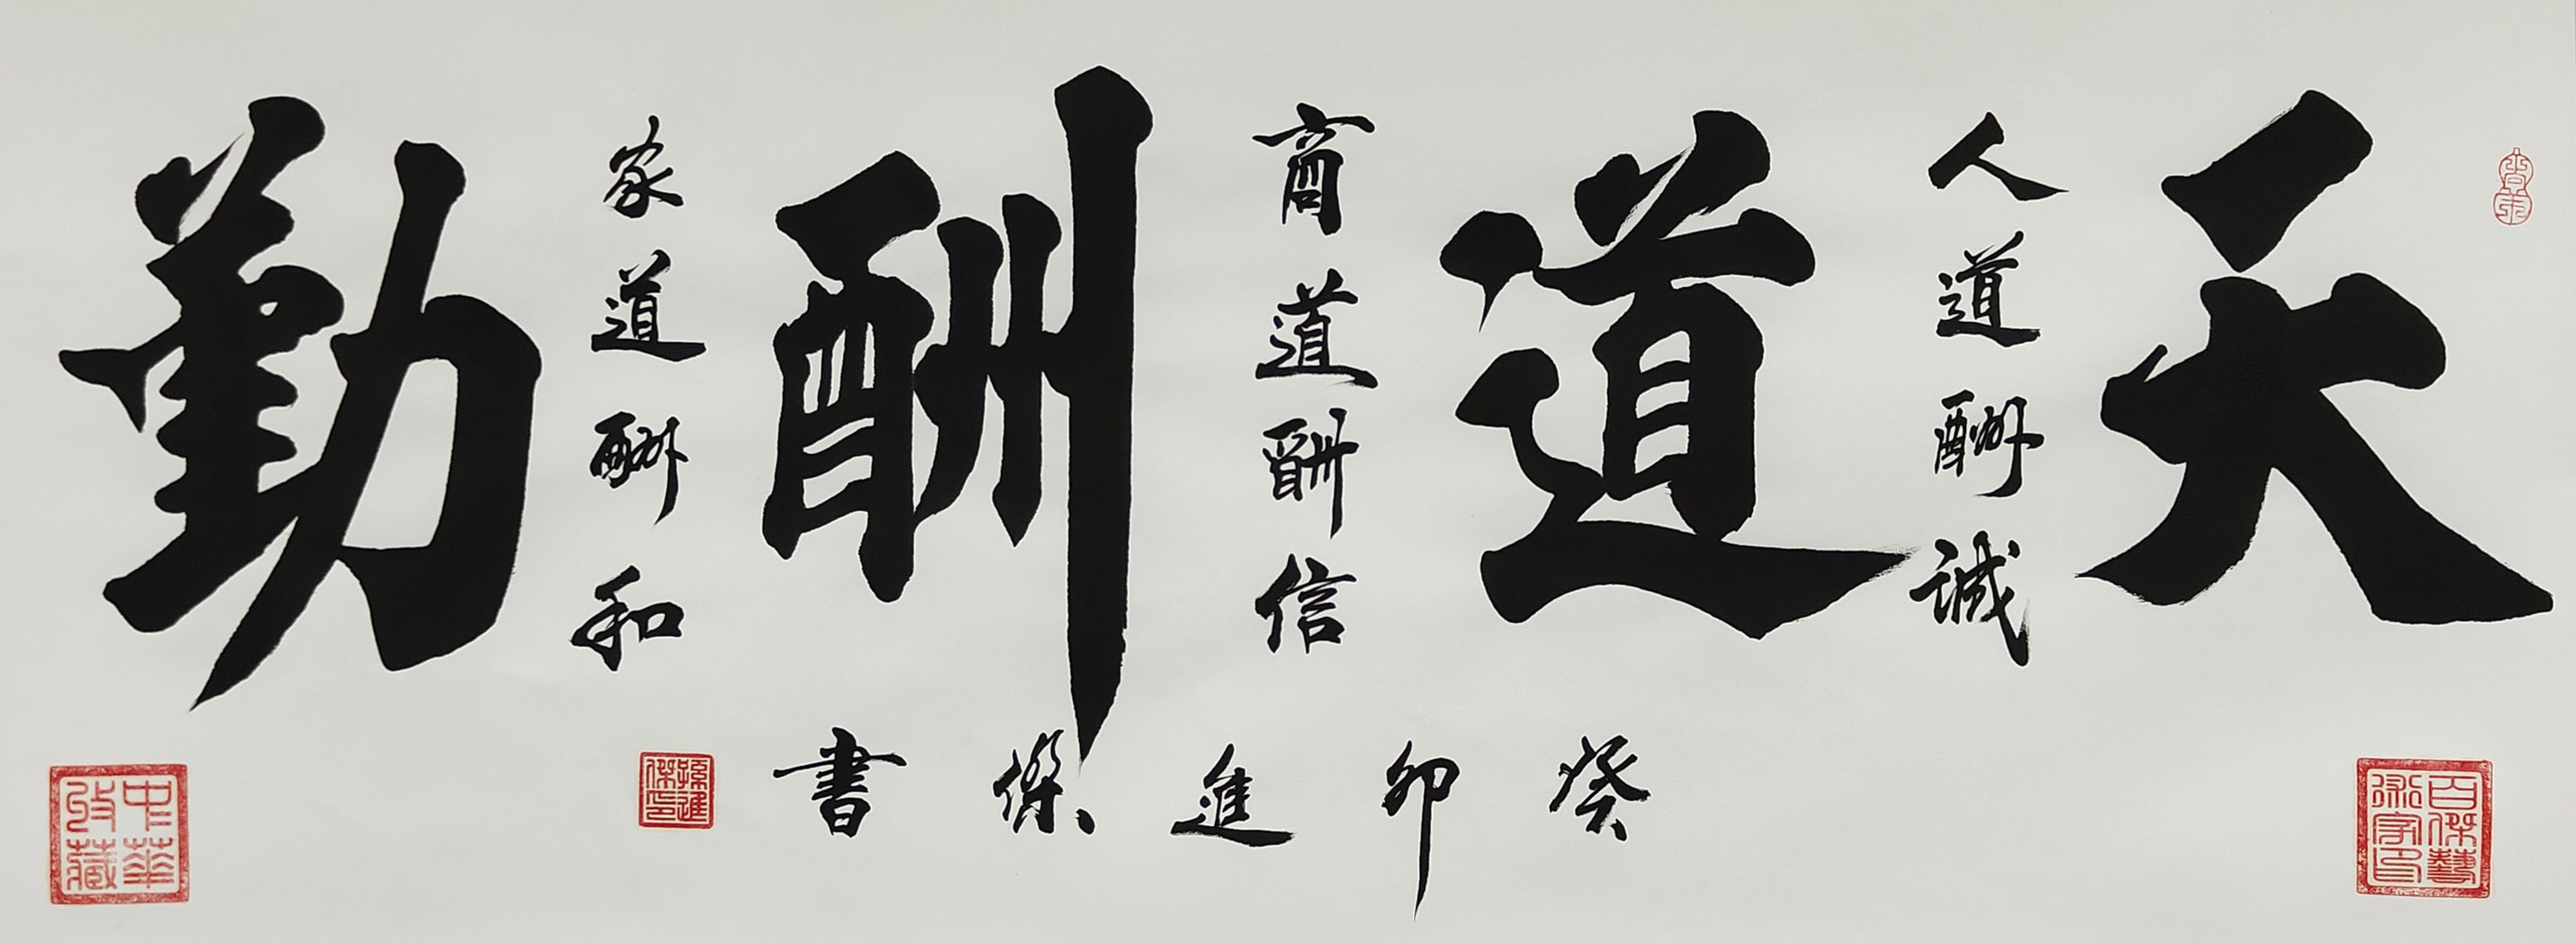 天道酬勤
人道酬誠
商道酬信
家道酬和
癸卯進傑書
孫進傑印
百傑藝術家印
中華收藏